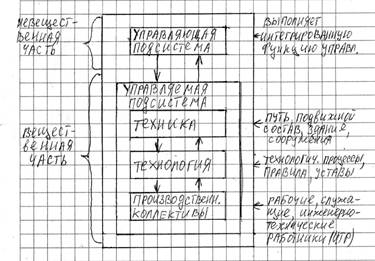 НЕВЕЩЕСТ-
ВЕННАЯ
ЧАСТЬ
УПРАВЛЯЮЩАЯ
ПОДСИСТЕМА
ВЫПОЛНЯЕТ
ИНТЕГРИРОВАННУЮ
ФУНКЦИЮ УПРАВЛ.
ВЕЩЕСТ-
ВЕННАЯ
ЧАСТЬ
УПРАВЛЯЕМАЯ
ПОДСИСТЕМА
ТЕХНИКА
ПУТЬ, ПОДВИЖНОЙ
СОСТАВ, ЗДАНИЯ,
СООРУЖЕНИЯ
ТЕХНОЛОГИЯ
ТЕХНОЛОГИЧ. ПРОЦЕССЫ,
ПРАВИЛА, УСТАВЫ
ПРОИЗВОДСТВЕНН.
КОЛЛЕКТИВЫ
РАБОЧИЕ, СЛУЖА-
ЩИЕ, ИНЖЕНЕРНО-
ТЕХНИЧЕСКИЕ
РАБОТНИКИ (ИТР)